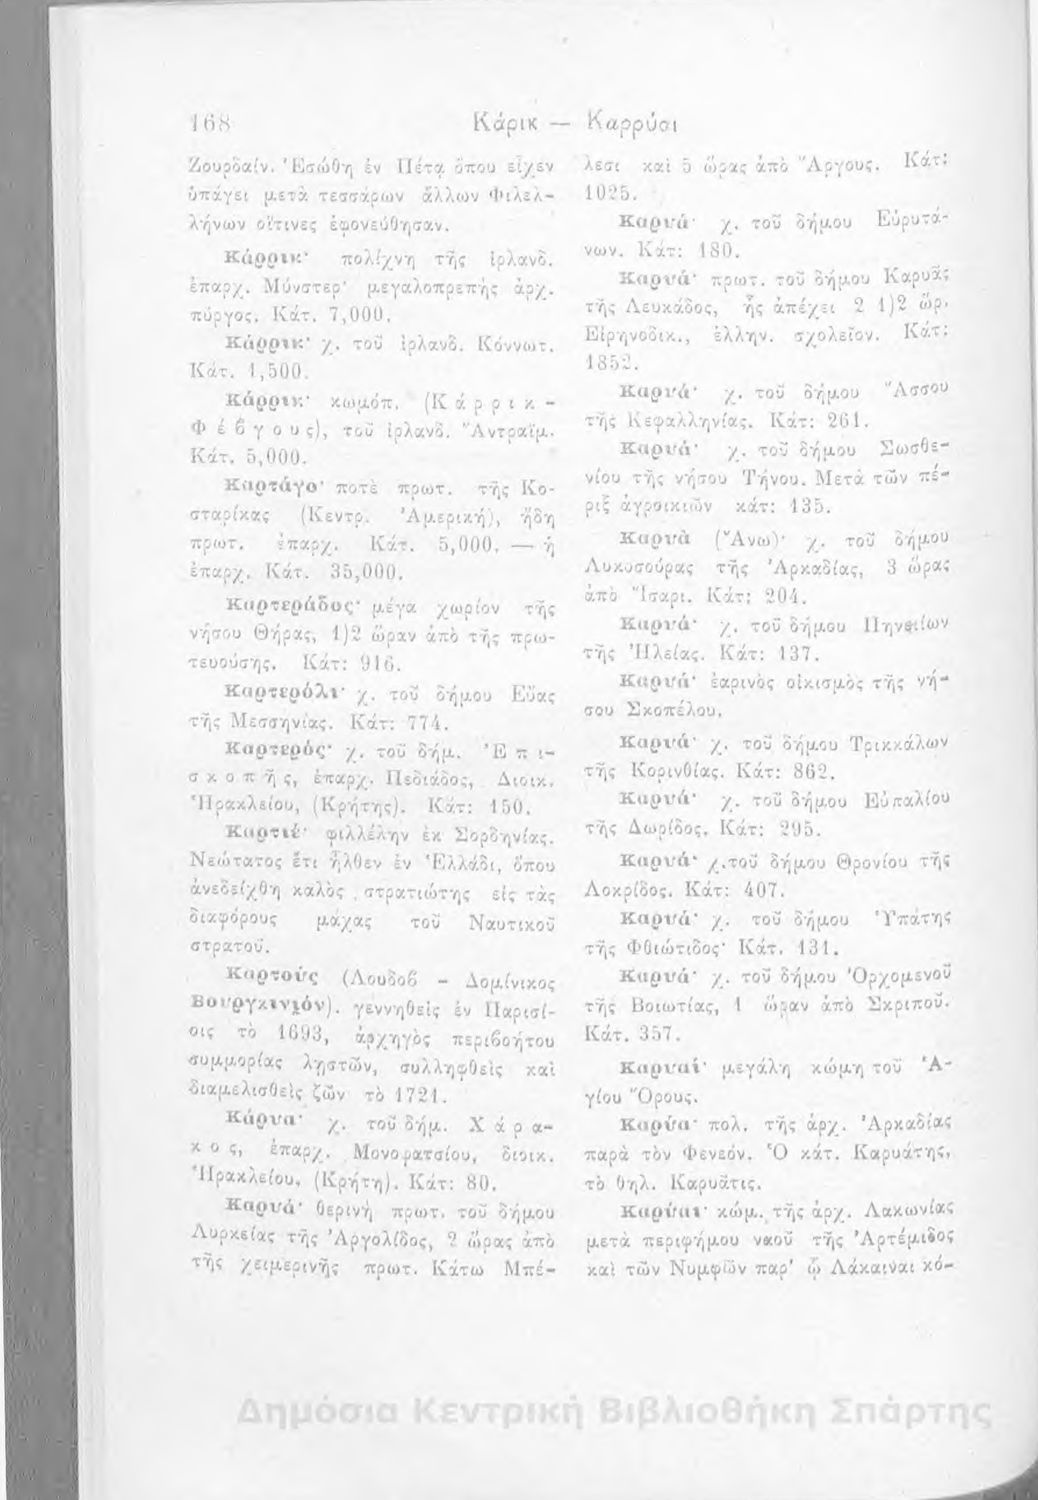 168 Κάρικ — Καρρύαι
Ζουρδαίν. Ἐσώθη ἐν Πέτᾳ ὅπου εἶχεν
ὑπάγει μετὰ τεσσάρων ἄλλων Φιλελ-
λήνων οἵτινες ἐφονεύθησαν.
Κάρρικ· πολίχνη τῆς ἰρλανδ.
ἐπαρχ. Μύνστερ· μεγαλοπρεπὴς ἀρχ.
πύργος. Κάτ. 7,000.
Κάρρικ· χ. τοῦ ἰρλανδ. Κόννωτ.
Κάτ. 1,500.
Κάρρικ· κωμόπ. (Κάρρικ -
Φέϐγους), τοῦ ἰρλανδ. Ἄντραϊμ.
Κάτ. 5,000.
Καρτάγο· ποτὲ πρωτ. τῆς Κο-
σταρίκας (Κεντρ. Ἀμερική), ἤδη
πρωτ. ἐπαρχ. Κάτ. 5,000. — ἡ
ἐπαρχ. Κάτ. 35,000.
Καρτεράδος· μέγα χωρίον τῆς
νήσου Θήρας, 1)2 ὥραν ἀπὸ τῆς πρω-
τευούσης. Κάτ: 916.
Καρτερόλι· χ. τοῦ δήμου Εὔας
τῆς Μεσσηνίας. Κάτ: 774.
Καρτερός· χ. τοῦ δήμ. Ἐπι-
σκοπῆς, ἐπαρχ. Πεδιάδος, Διοικ.
Ἡρακλείου, (Κρήτης). Κάτ: 150.
Καρτιέ· φιλλέλην ἐκ Σορδηνίας.
Νεώτατος ἔτι ἦλθεν ἐν Ἑλλάδι, ὅπου
ἀνεδείχθη καλὸς στρατιώτης εἰς τὰς
διαφόρους μάχας τοῦ Ναυτικοῦ
στρατοῦ.
Καρτοὺς (Λουδοϐ - Δομίνικος
Βουργκινιόν). γεννηθεὶς ἐν Παρισί-
οις τὸ 1693, ἀρχηγὸς περιϐοήτου
συμμορίας λῃστῶν, συλληφθεὶς καὶ
διαμελισθεὶς ζῶν τὸ 1721.
Κάρυα· χ. τοῦ δήμ. Χάρα-
κος, ἐπαρχ. Μονοφατσίου, διοικ.
Ἡρακλείου, (Κρήτη). Κάτ: 80.
Καρυά· θερινὴ πρωτ. τοῦ δήμου
Λυρκείας τῆς Ἀργολίδος, 2 ὥρας ἀπὸ
τῆς χειμερινῆς πρωτ. Κάτω Μπέ-
λεσι καὶ 5 ὥρας ἀπὸ Ἄργους. Κάτ:
1025.
Καρυά· χ. τοῦ δήμου Εὐρυτά-
νων. Κάτ: 180.
Καρυά· πρωτ. τοῦ δήμου Καρυᾶς
τῆς Λευκάδος, ἧς ἀπέχει 2 1)2 ὥρ.
Εἰρηνοδικ., ἑλλην. σχολεῖον. Κάτ:
1852.
Καρυά· χ. τοῦ δήμου Ἄσσου
τῆς Κεφαλληνίας. Κάτ: 261.
Καρυά· χ. τοῦ δήμου Σωσθε-
νίου τῆς νήσου Τήνου. Μετὰ τῶν πέ-
ριξ ἀγροικιῶν κάτ: 135.
Καρυὰ (Ἄνω)· χ. τοῦ δήμου
Λυκοσούρας τῆς Ἀρκαδίας, 3 ὥρας
ἀπὸ Ἴσαρι. Κάτ: 204.
Καρυά· χ. τοῦ δήμου Πηνείων
τῆς Ἠλείας. Κάτ: 137.
Καρυά· ἐαρινὸς οἰκισμὸς τῆς νή-
σου Σκοπέλου.
Καρυά· χ. τοῦ δήμου Τρικκάλων
τῆς Κορινθίας. Κάτ: 862.
Καρυά· χ. τοῦ δήμου Εὐπαλίου
τῆς Δωρίδος. Κάτ: 295.
Καρυά· χ.τοῦ δήμου Θρονίου τῆς
Λοκρίδος. Κάτ: 407.
Καρυά· χ. τοῦ δήμου Ὑπάτης
τῆς Φθιώτιδος· Κάτ. 131.
Καρυά· χ. τοῦ δήμου Ὀρχομενοῦ
τῆς Βοιωτίας, 1 ὥραν ἀπὸ Σκριποῦ.
Κάτ. 357.
Καρυαί· μεγάλη κώμη τοῦ Ἁ-
γίου Ὄρους.
Καρύα· πολ. τῆς ἀρχ. Ἀρκαδίας
παρὰ τὸν Φενεόν. Ὁ κάτ. Καρυάτης,
τὸ θηλ. Καρυᾶτις.
Καρύαι· κώμ. τῆς ἀρχ. Λακωνίας
μετὰ περιφήμου ναοῦ τῆς Ἀρτέμιδος
καὶ τῶν Νυμφῶν παρ' ᾧ Λάκαιναι κό-
Δημόσια Κεντρική Βιβλιοθήκη Σπάρτης